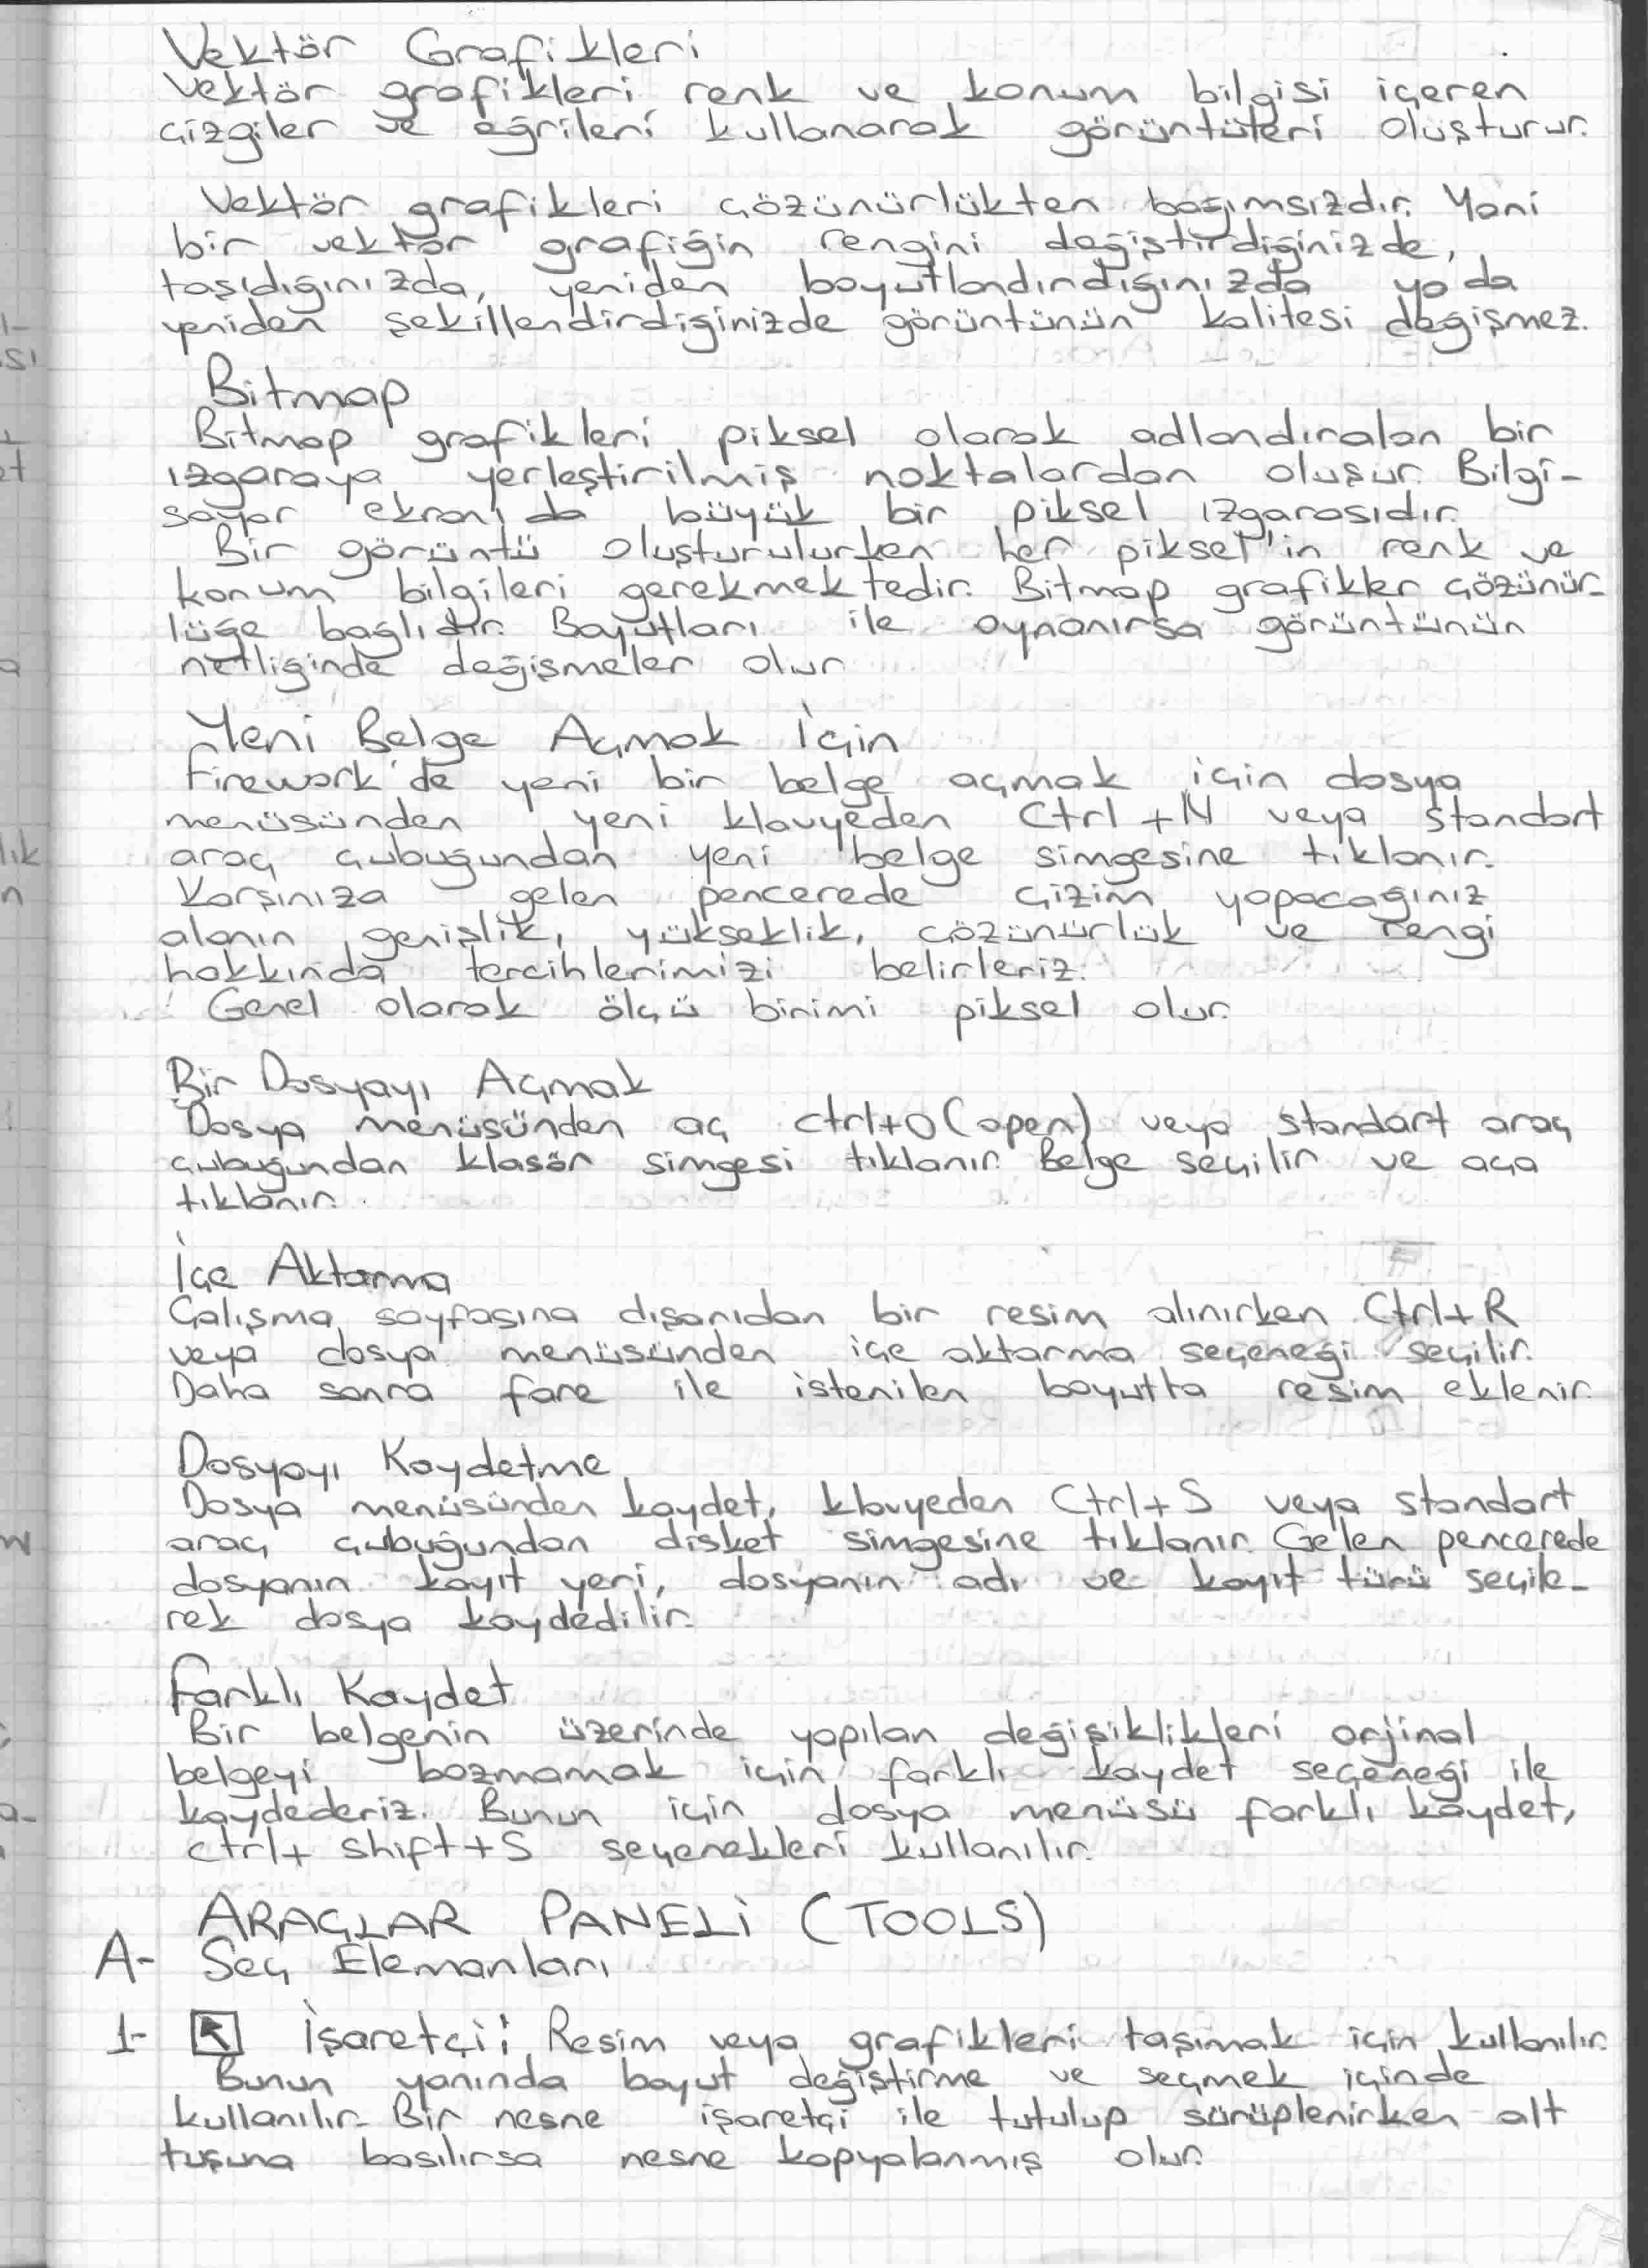 Vektör Grafikleri
Vektör grafikleri renk ve konum bilgisi içeren
çizgiler ve eğrileri kullanarak görüntüleri oluşturur.
Vektör grafikleri çözünürlükten bağımsızdır. Yani
bir vektör grafiğin rengini değiştirdiğinizde,
taşıdığınızda, yeniden boyutlandırdığınızda ya da
yeniden şekillendirdiğinizde görüntünün kalitesi değişmez.
Bitmap
Bitmap grafikleri piksel olarak adlandıralan bir
ızgaraya yerleştirilmiş noktalardan oluşur. Bilgi-
sayar ekranı da büyük bir piksel ızgarasıdır.
Bir görüntü oluşturulurken her piksel'in renk ve
konum bilgileri gerekmektedir. Bitmap grafikler çözünür-
lüğe bağlıdır. Boyutları ile oynanırsa görüntünün
netliğinde değişmeler olur
Yeni Belge Açmak İçin
Firework'de yeni bir belge açmak için dosya
menüsünden yeni klavyeden Ctrl+N veya standart
araç çubuğundan yeni belge simgesine tıklanır.
Karşınıza gelen pencerede çizim yapacağınız
alanın genişlik, yükseklik, çözünürlük ve rengi
hakkında tercihlerimizi belirleriz.
Genel olarak ölçü birimi piksel olur.
Bir Dosyayı Açmak
Dosya menüsünden aç ctrl+O (open) veya standart araç
çubuğundan klasör simgesi tıklanır. Belge seçilir ve aça
tıklanır.
İçe Aktarma
Çalışma sayfasına dışarıdan bir resim alınırken Ctrl+R
veya dosya menüsünden içe aktarma seçeneği seçilir.
Daha sonra fare ile istenilen boyutta resim eklenir.
Dosyayı Kaydetme
Dosya menüsünden kaydet, klavyeden Ctrl+S veya standart
araç çubuğundan disket simgesine tıklanır. Gelen pencerede
dosyanın kayıt yeri, dosyanın adı ve kayıt türü seçile-
rek dosya kaydedilir.
Farklı Kaydet
Bir belgenin üzerinde yapılan değişiklikleri orjinal
belgeyi bozmamak için farklı kaydet seçeneği ile
kaydederiz. Bunun için dosya menüsü farklı kaydet,
ctrl+ shift+S seçenekleri kullanılır.
ARAÇLAR PANELİ (TOOLS)
A- Seç Elemanları
1- İşaretçi: Resim veya grafikleri taşımak için kullanılır.
Bunun yanında boyut değiştirme ve seçmek içinde
kullanılır. Bir nesne işaretçi ile tutulup sürüplenirken alt
tuşuna basılırsa nesne kopyalanmış olur.